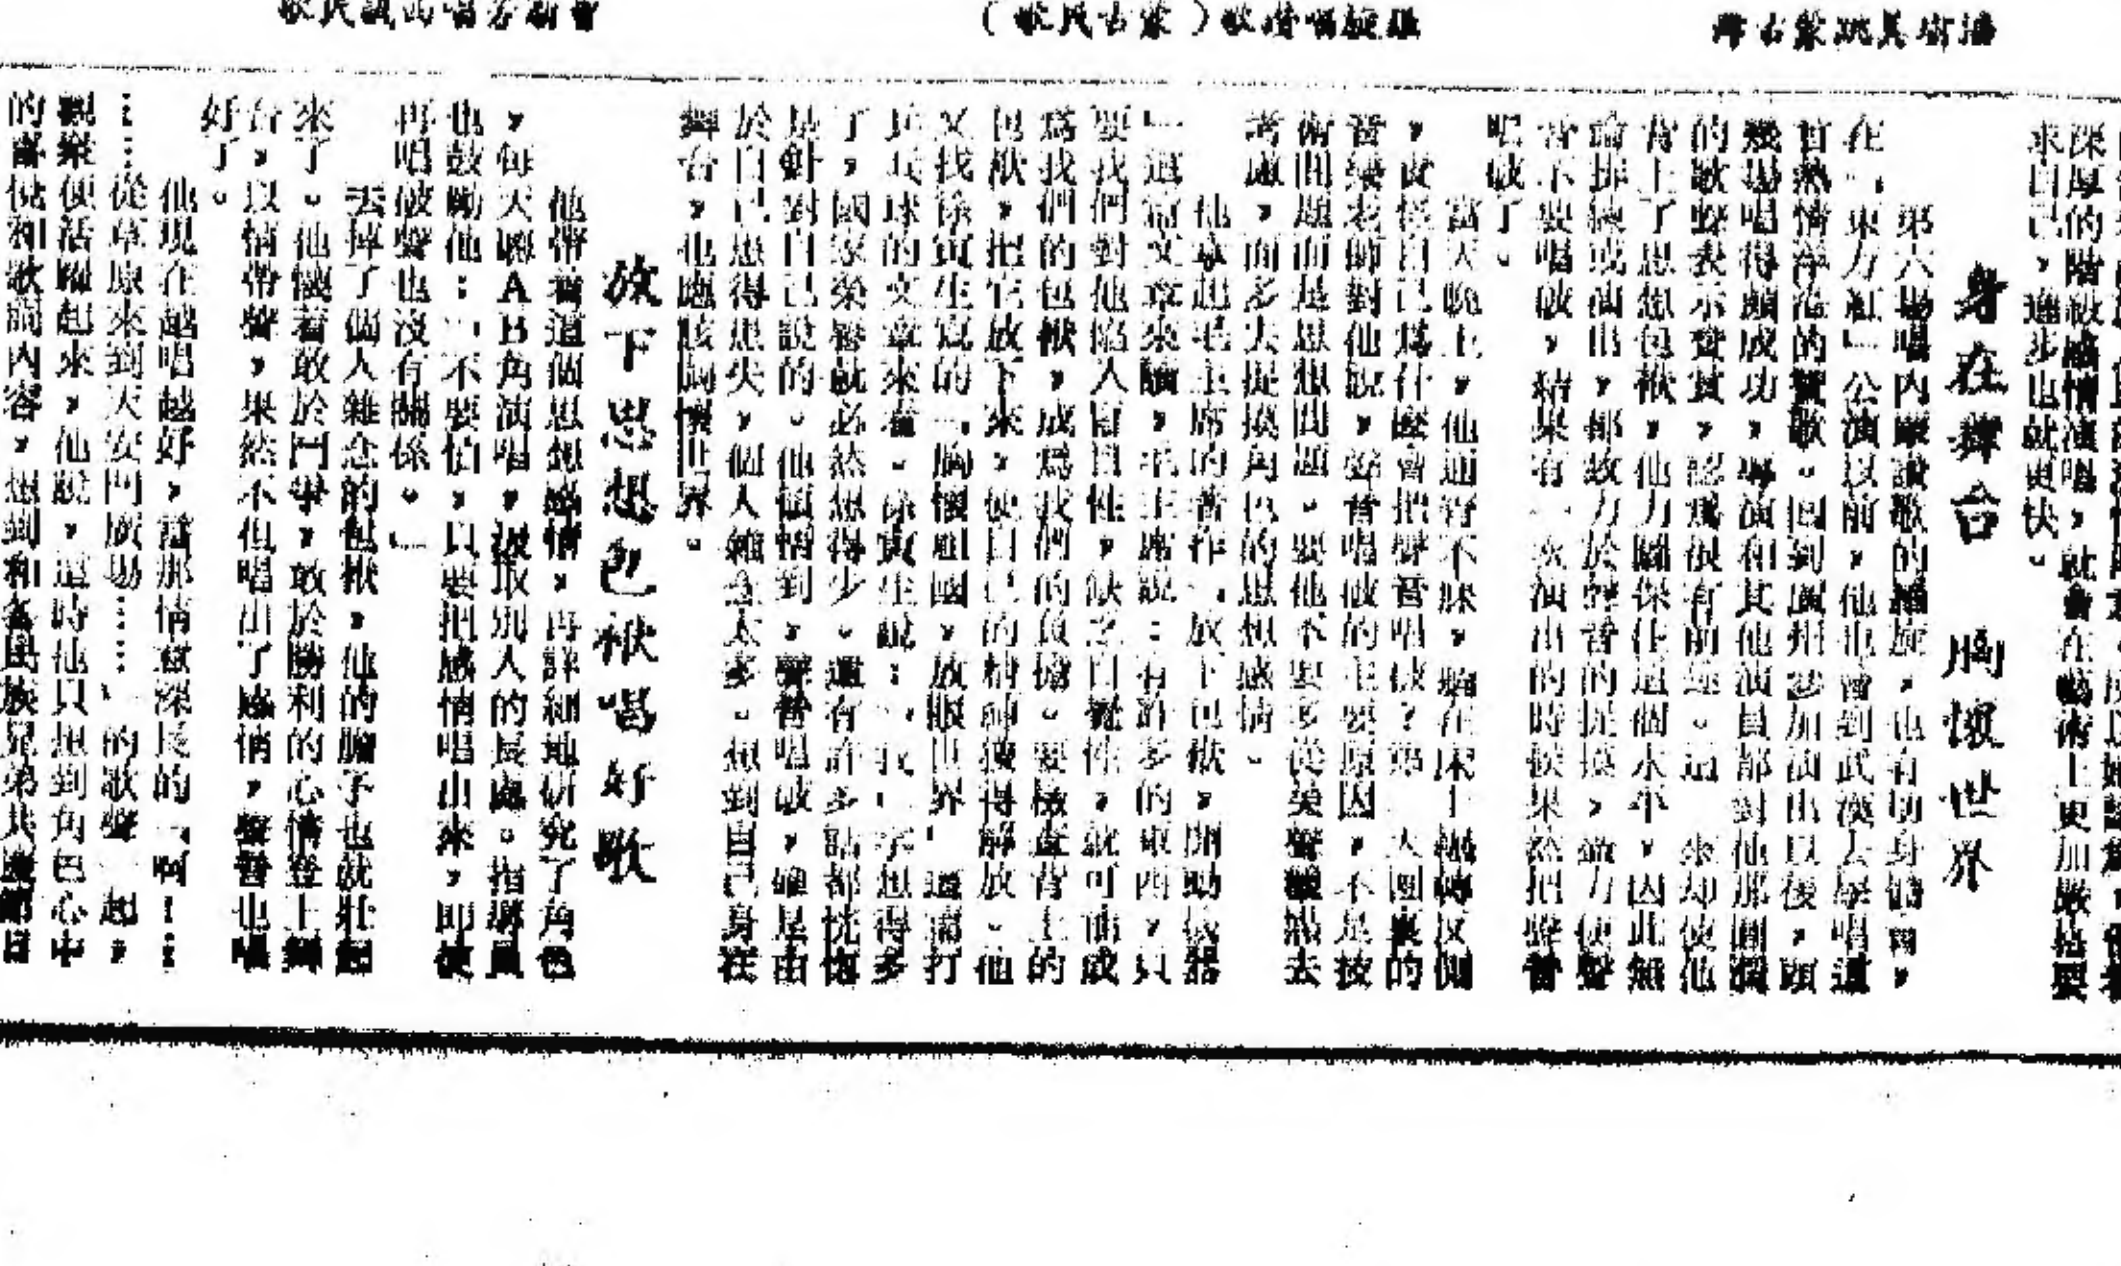 深厚的階級感情演唱，就會在藝術上更加嚴格要
求自己，進步也就更快。
身在舞台　胸懷世界
第六場唱內蒙讚歌的，也有切身體會，
在「東方紅」公演以前，他也曾到武漢大學唱這
首熱情洋溢的贊歌。回到廣州參加演出以後，頭
幾場唱得頗成功，導演和其他演員都對他那圓潤
的歌聲表示贊賞，認爲很有前途。這　來却使他
背上了思想包袱，他力圖保住這個水平，因此無
論排練或演出，都致力於聲音的提換，盡力使聲
音不要唱破，結果有一次演出的時候果然把聲音
唱破了。
當天晚上，他通宵不眠，躺在床上輾轉反側
，責怪自己爲什麼會把聲音唱破？第　大團裏的
音樂老師對他說，聲音唱破的主要原因，不是技
術問題而是思想問題。要他不要多從美聲觀點去
考慮，而多去捉摸角色的思想感情。
他拿起毛主席的著作「放下包袱，開動機器
」這篇文章來讀，毛主席說：有許多的東西，只
要我們對他陷入盲目性，缺乏自覺性，就可能成
爲我們的包袱，成爲我們的負擔。要檢查背上的
包袱，把它放下來，使自己的精神獲得解放。他
又找徐寅生寫的「胸懷祖國，放眼世界」這篇打
乒乓球的文章來看。徐寅生說：「『我』字想得多
了，國家榮譽就必然想得少。還有許多話都恍惚
是針對自己說的。他領悟到，聲音唱破，確是由
於自己患得患失，個人雜念太多。想到自己身在
舞台，也應該胸懷世界。
放下思想包袱唱好歌
他帶着這個思想感情，再詳細地研究了角色
，每天聽AB角演唱，汲取別人的長處。指導員
也鼓勵他：「不要怕，只要把感情唱出來，即使
再唱破聲也沒有關係。」
去掉了個人雜念的包袱，他的膽子也就壯起
來了。他懷着敢於鬥爭，敢於勝利的心情登上舞
台，以情帶聲，果然不但唱出了感情，聲音也唱
好了。
他現在越唱越好，當那情意深長的「啊……
……從草原來到天安門廣場……」的歌聲一起，
觀衆便活躍起來，他說，這時他只想到角色心中
的喜悅和歌詞內容，想到和各民族兄弟共慶節日